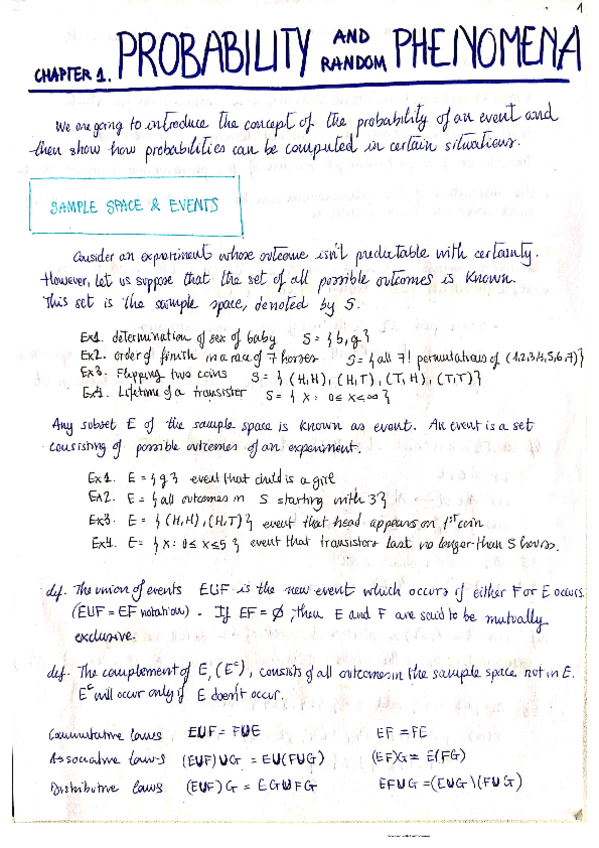 1
CHAPTER 1. PROBABILITY AND RANDOM PHENOMENA
We are going to introduce the concept of the probability of an event and
then show how probabilities can be computed in certain situations.
SAMPLE SPACE & EVENTS
Consider an experiment whose outcome isn't predictable with certainty.
However, let us suppose that the set of all possible outcomes is known.
This set is the sample space, denoted by S.
Ex1. determination of sex of baby S = {b,g}
Ex2. order of finish in a race of 7 horses S = {all 7! permutations of (1,2,3,4,5,6,7)}
Ex3. Flipping two coins S = {(H,H), (H,T), (T,H), (T,T)}
Ex4. Lifetime of a transistor S = {X: 0≤ X≤∞}
Any subset E of the sample space is known as event. An event is a set
consisting of possible outcomes of an experiment.
Ex1. E = {g} event that child is a girl
Ex2. E = {all outcomes in S starting with 3}
Ex3. E = {(H,H), (H,T)} event that head appears on 1st coin
Ex4. E = {X: 0≤ X≤5} event that transistors last no longer than 5 hours.
def. The union of events EUF is the new event which occurs if either F or E occurs.
(EUF = EF notation). If EF = Ø, then E and F are said to be mutually
exclusive.
def. The complement of E, (Eᶜ), consists of all outcomes in the sample space not in E.
Eᶜ will occur only if E doesn't occur.
Commutative laws EUF = FUE EF = FE
Associative laws (EUF)UG = EU(FUG) (EF)G = E(FG)
Distributive laws (EUF)G = EGUFG EFUG = (EUG)(FUG)